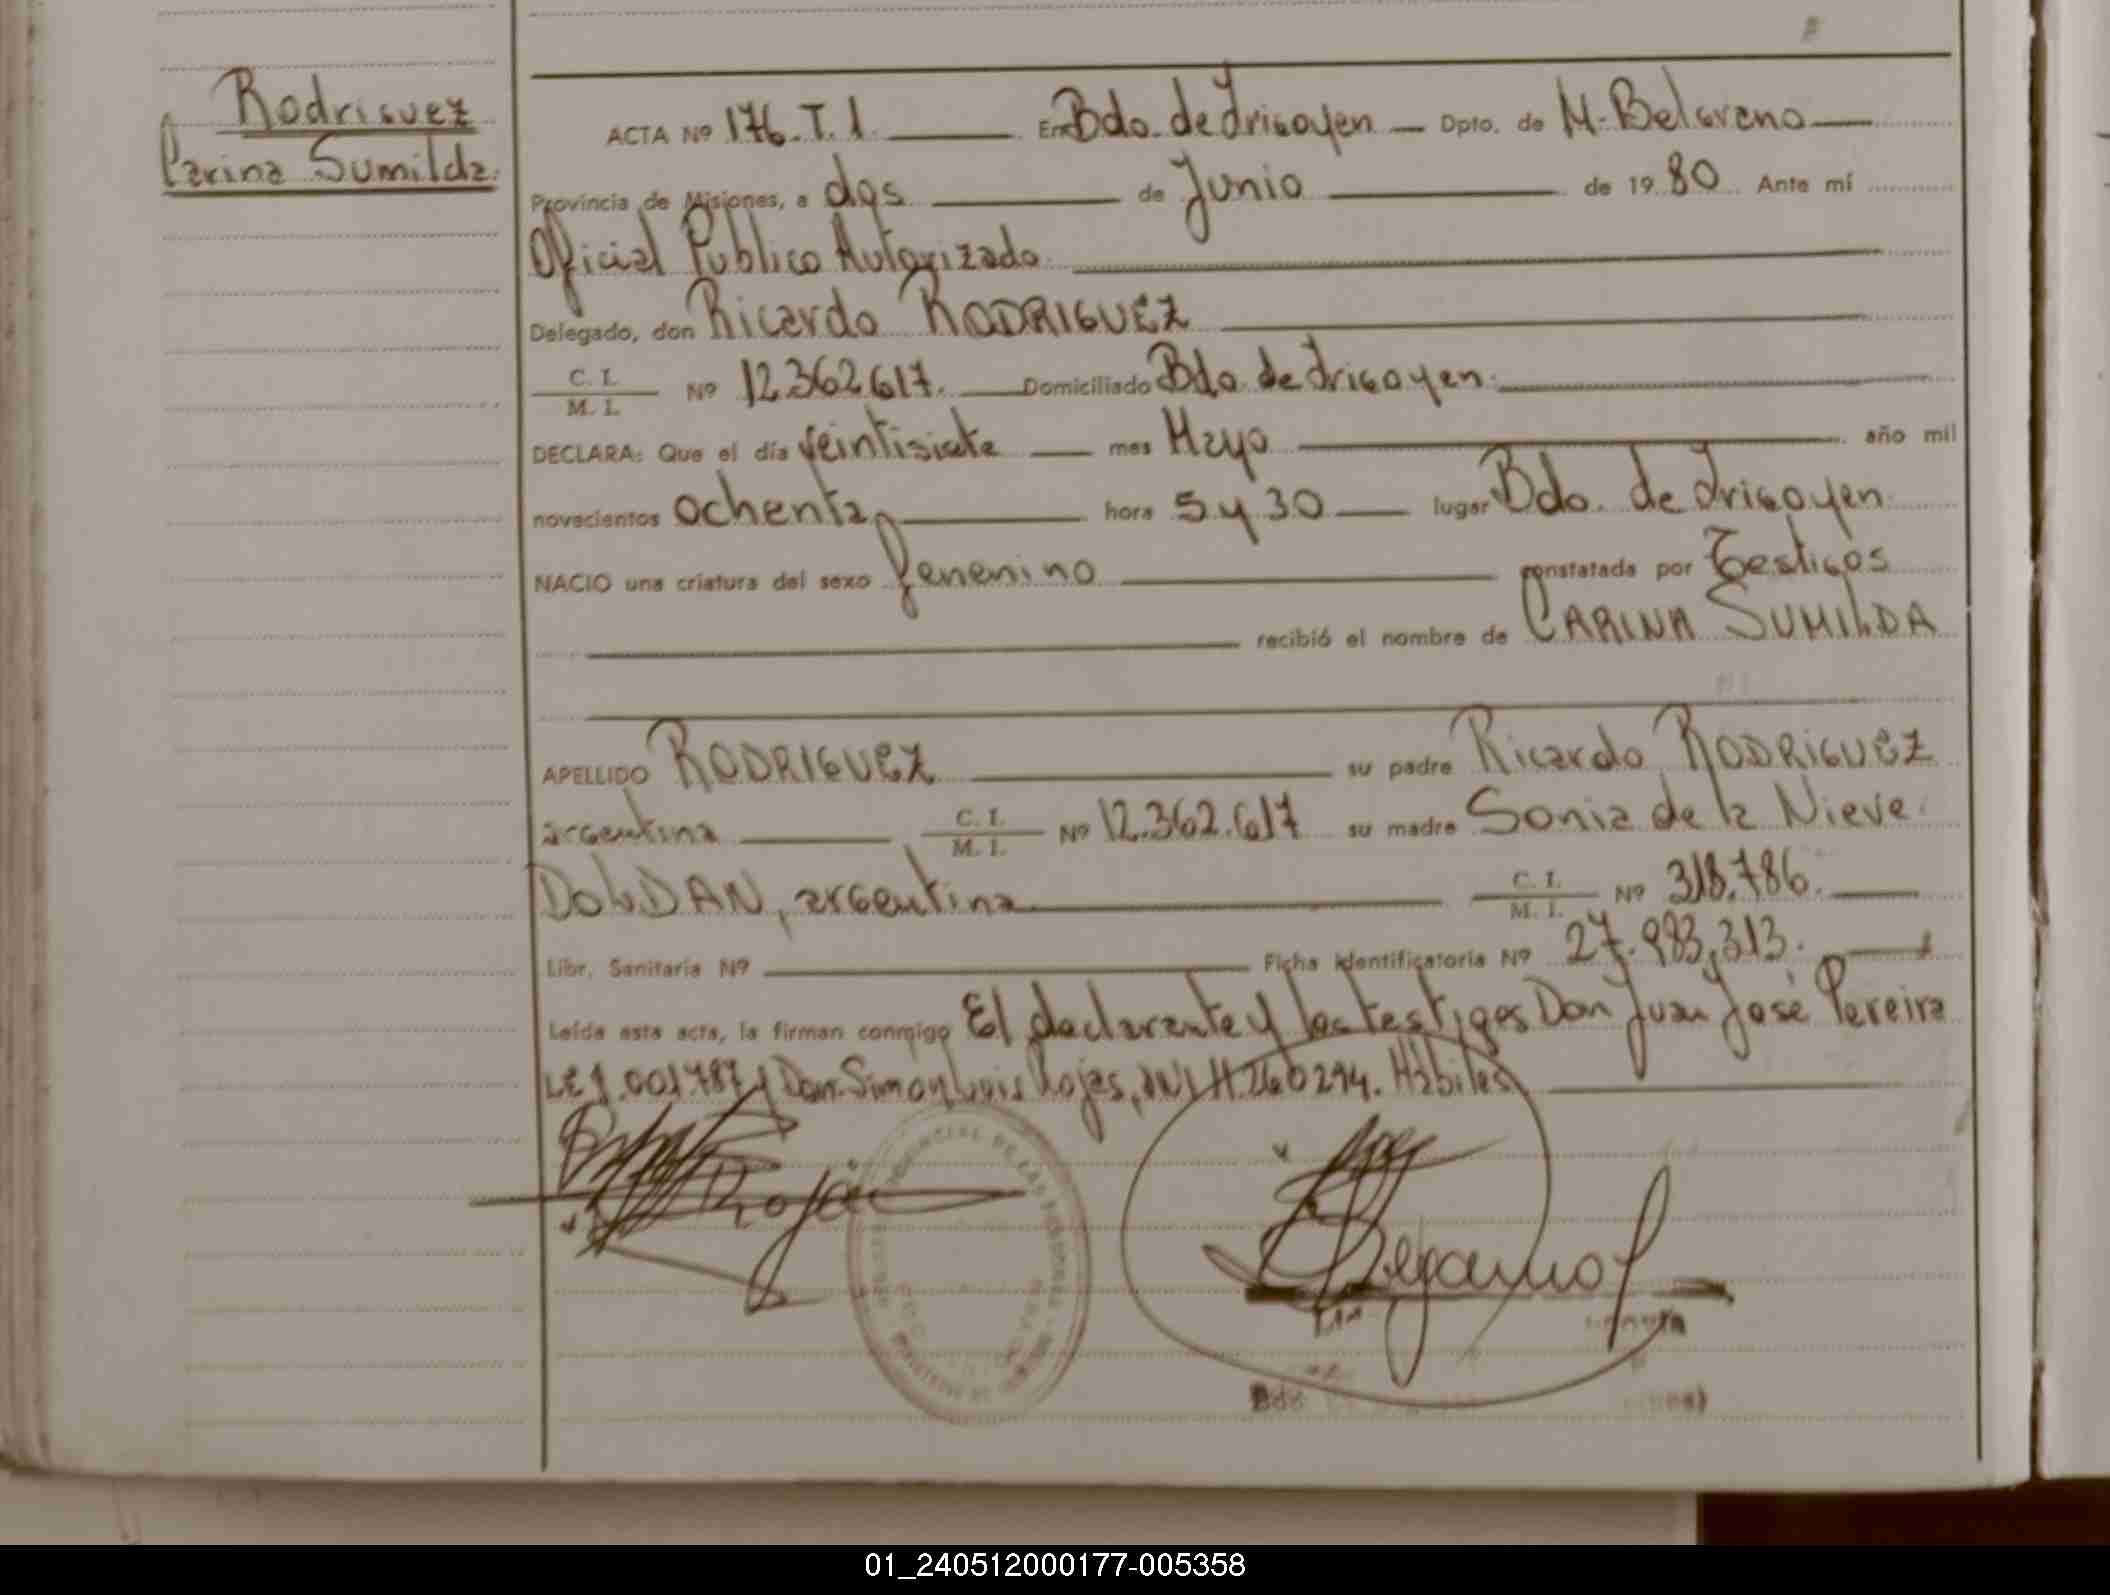 Rodriguez
Carina Sumilda.
ACTA Nº 176.T.1. En Bdo. de Irigoyen Dpto. de M. Belgrano
Provincia de Misiones, a dos de Junio de 1980 Ante mí
Oficial Público Autorizado
Delegado, don Ricardo RODRIGUEZ
C. I.
M. I. Nº 12.362.617. Domiciliado Bdo. de Irigoyen.
DECLARA: Que el día veintisiete mes Mayo año mil
novecientos ochenta hora 5 y 30 lugar Bdo. de Irigoyen.
NACIO una criatura del sexo femenino constatada por Testigos
recibió el nombre de CARINA SUMILDA
APELLIDO RODRIGUEZ su padre Ricardo RODRIGUEZ
argentina C. I.
M. I. Nº 12.362.617 su madre Sonia de la Nieve
DOLDAN, argentina C. I.
M. I. Nº 318.786.
Libr. Sanitaria Nº Ficha identificatoria Nº 27.983.313.
Leída esta acta, la firman conmigo El declarante y los testigos Don Juan José Pereira
LE 1.001.787 y Don Simon Luis Rojas, Hábiles
Rojas
Bdo
01_240512000177-005358